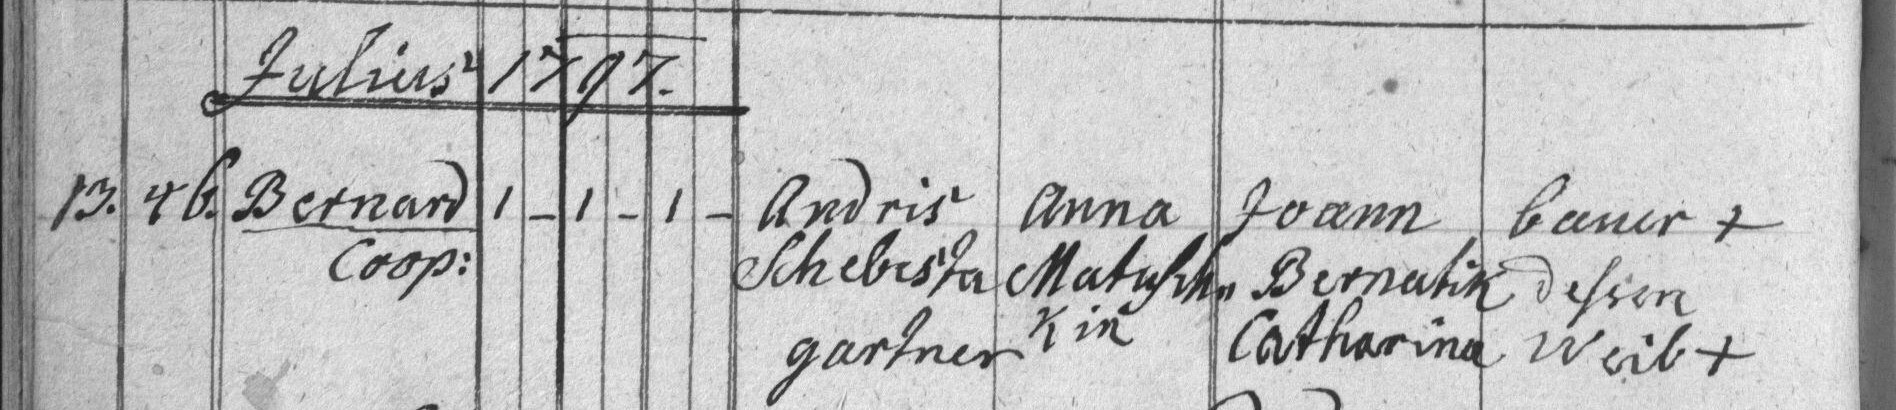 Julius 1797.
13. 46. Bernard 1 - 1 - 1 - Andris Anna Joann bauer +
Coop: Schebesta Matuschn Bernatik dessen
gartner Kin Catharina Weib +